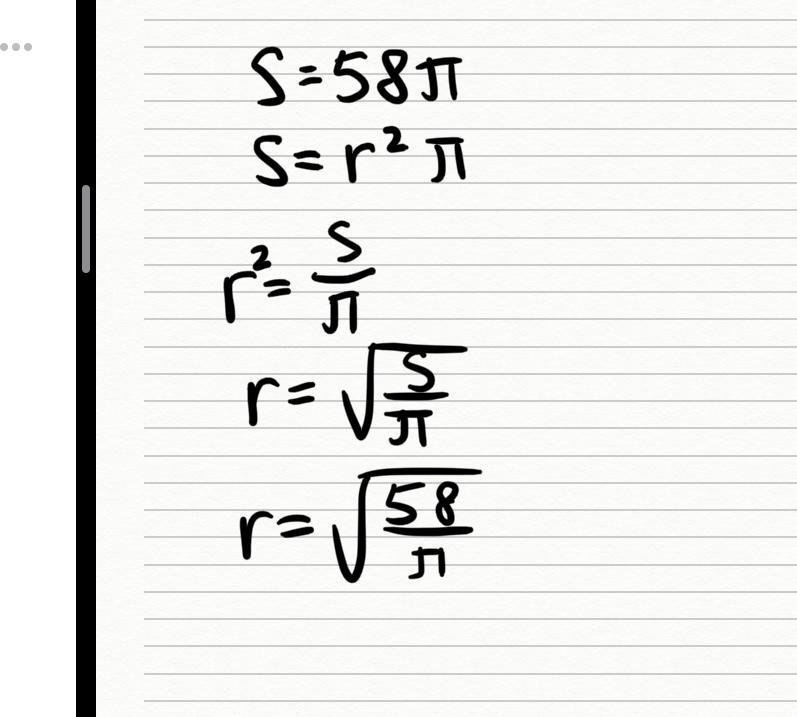 S=58π
S=r²π
r²=S/π
r=√(S/π)
r=√(58/π)